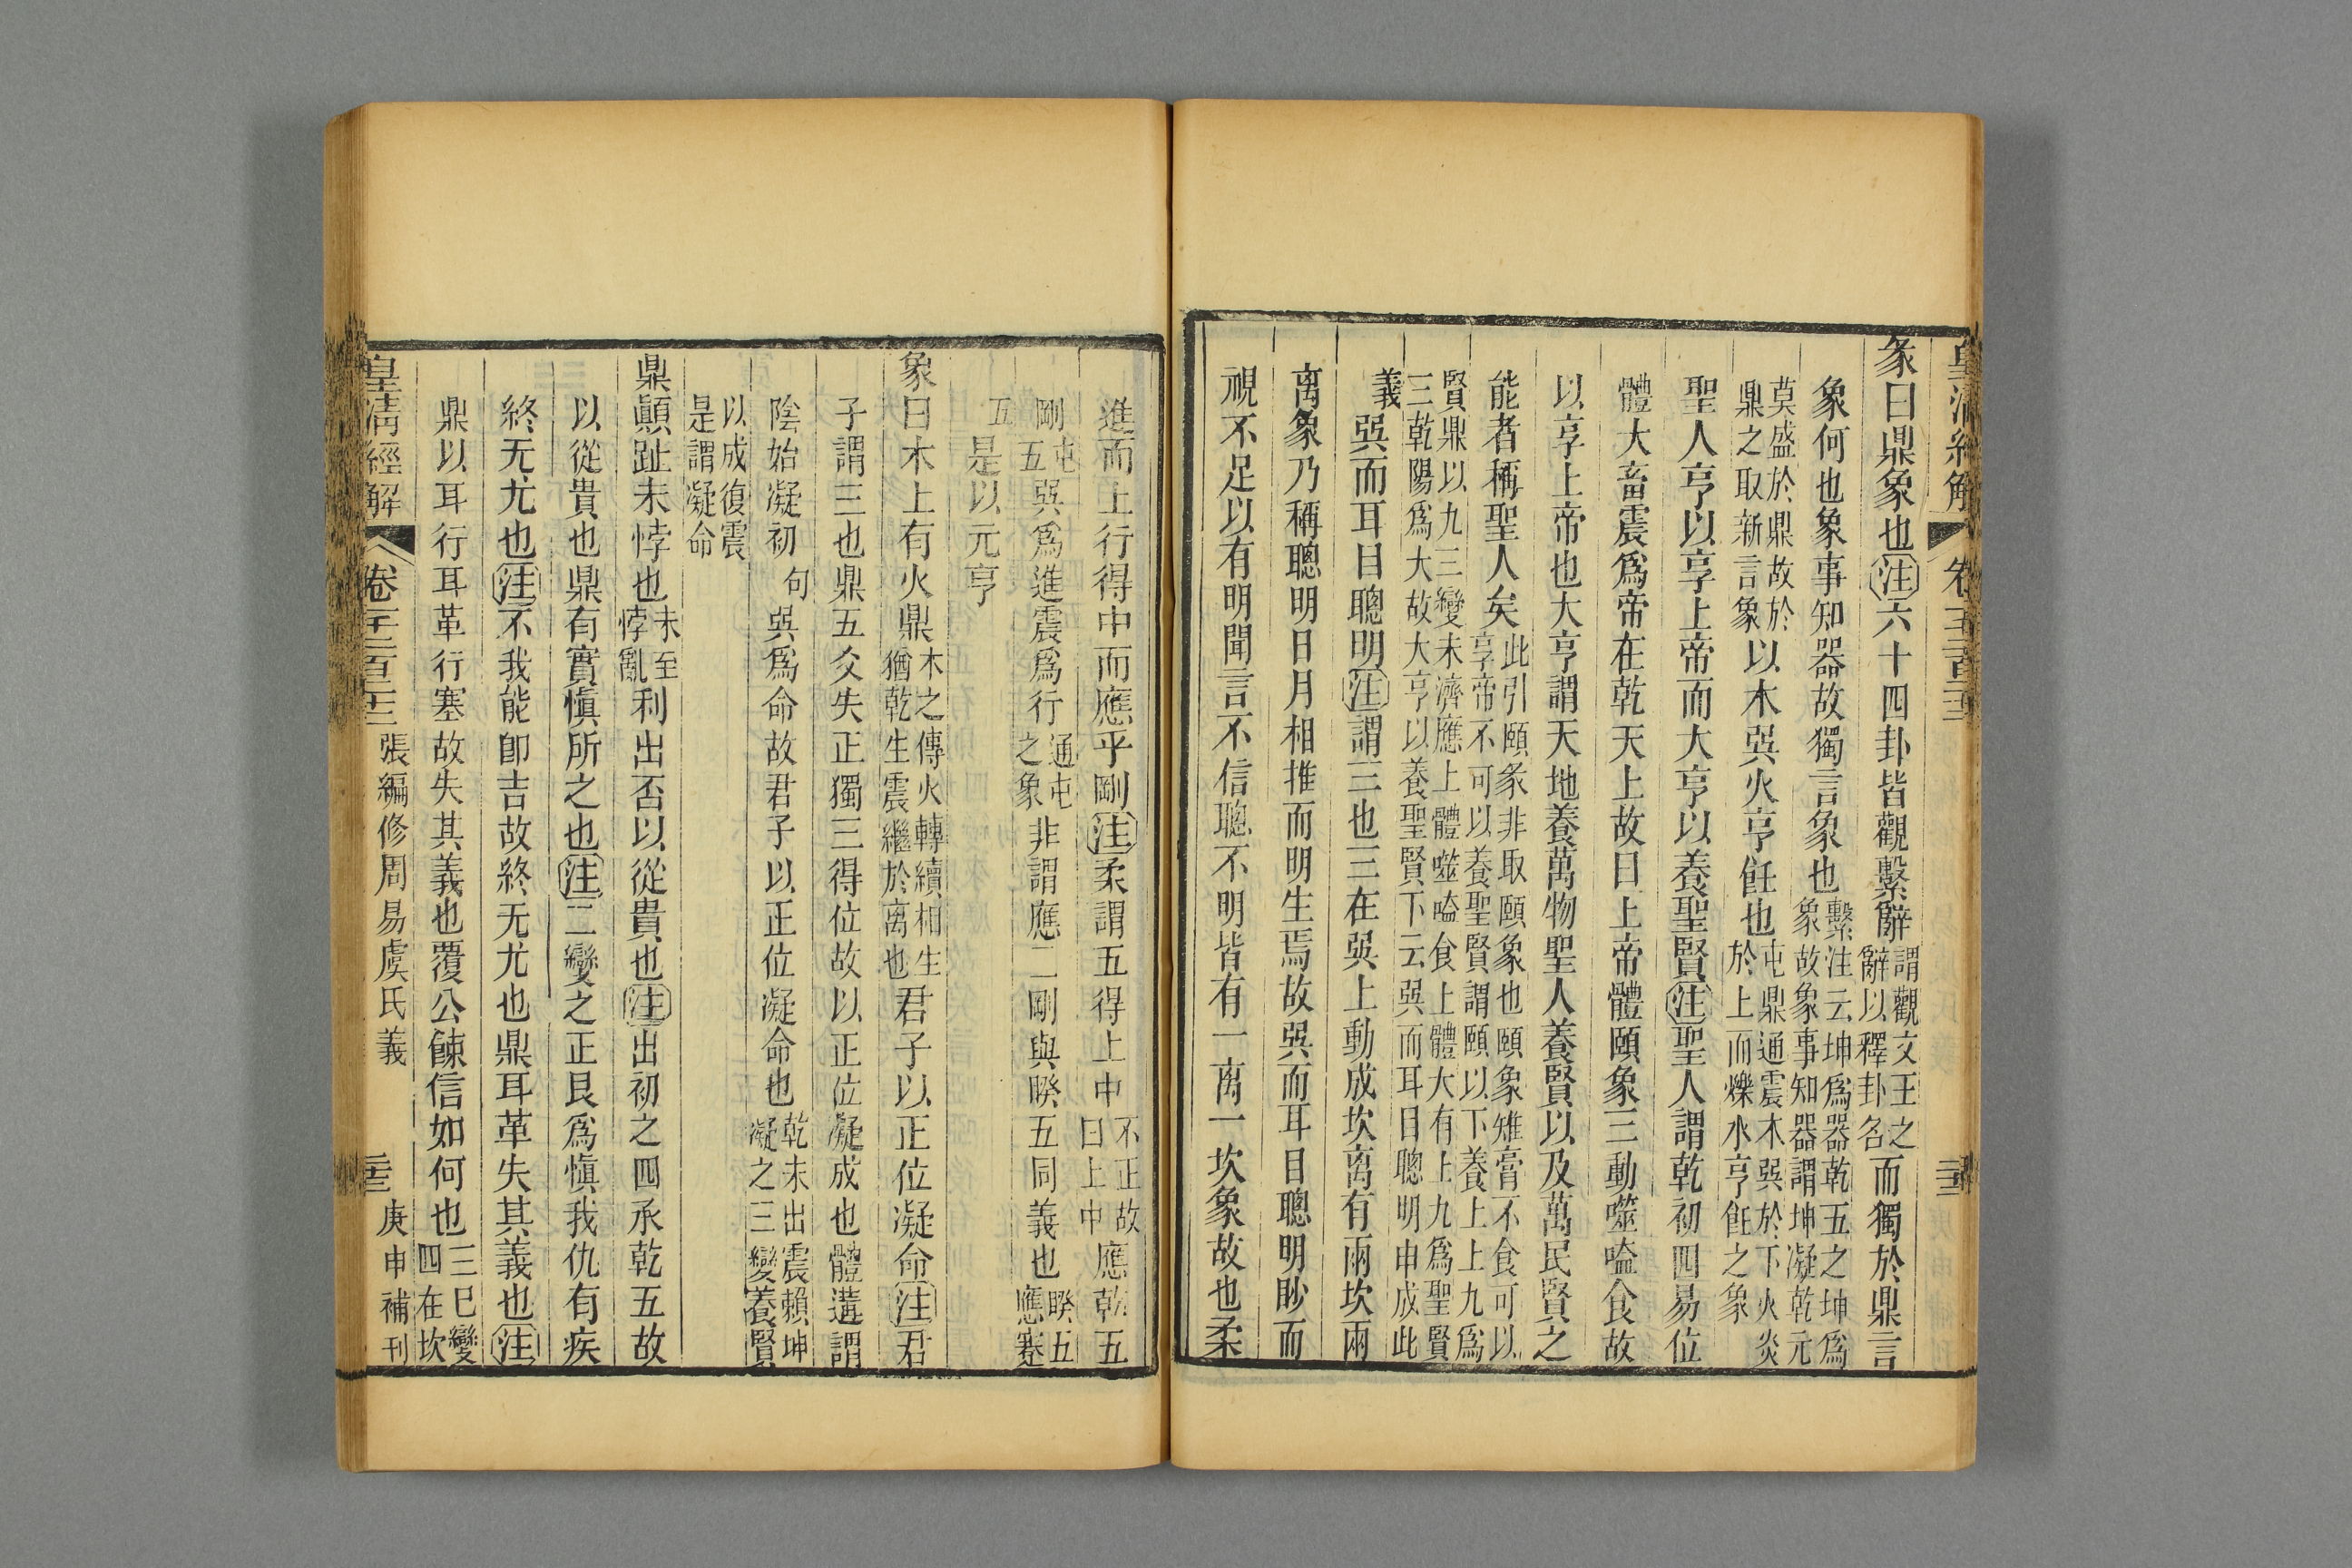 皇清經解 卷千二百二十三 三十三
彖曰鼎象也注六十四卦皆觀繫辭謂觀文王之辭以釋卦名而獨於鼎言
象何也象事知器故獨言象也繫注云坤爲器乾五之坤爲象故象事知器謂坤凝乾元
莫盛於鼎故於鼎之取新言象以木巽火亨飪也屯鼎通震木巽於下火炎於上而爍水亨飪之象
聖人亨以享上帝而大亨以養聖賢注聖人謂乾初四易位
體大畜震爲帝在乾天上故曰上帝體頤象三動噬嗑食故
以享上帝也大亨謂天地養萬物聖人養賢以及萬民賢之
能者稱聖人矣此引頤彖非取頤象也頤象雉膏不食可以享帝不可以養聖賢謂頤以下養上上九爲
賢鼎以九三變未濟應上體噬嗑食上體大有上九爲聖賢三乾陽爲大故大亨以養聖賢下云巽而耳目聰明申成此
義巽而耳目聰明注謂三也三在巽上動成坎离有兩坎兩
离象乃稱聰明日月相推而明生焉故巽而耳目聰明眇而
視不足以有明聞言不信聰不明皆有一离一坎象故也柔
進而上行得中而應乎剛注柔謂五得上中不正故曰上中應乾五
剛屯五巽爲進震爲行通屯之象非謂應二剛與睽五同義也睽五應蹇
五是以元亨
象曰木上有火鼎木之傳火轉續相生猶乾生震繼於离也君子以正位凝命注君
子謂三也鼎五爻失正獨三得位故以正位凝成也體遘謂
陰始凝初句巽爲命故君子以正位凝命也乾未出震賴坤凝之三變養賢
以成復震是謂凝命
鼎顚趾未悖也未至悖亂利出否以從貴也注出初之四承乾五故
以從貴也鼎有實愼所之也注二變之正艮爲愼我仇有疾
終无尤也注不我能卽吉故終无尤也鼎耳革失其義也注
鼎以耳行耳革行塞故失其義也覆公餗信如何也三巳變四在坎
皇清經解 卷千二百二十三 張編修周易虞氏義 三十三 庚申補刊